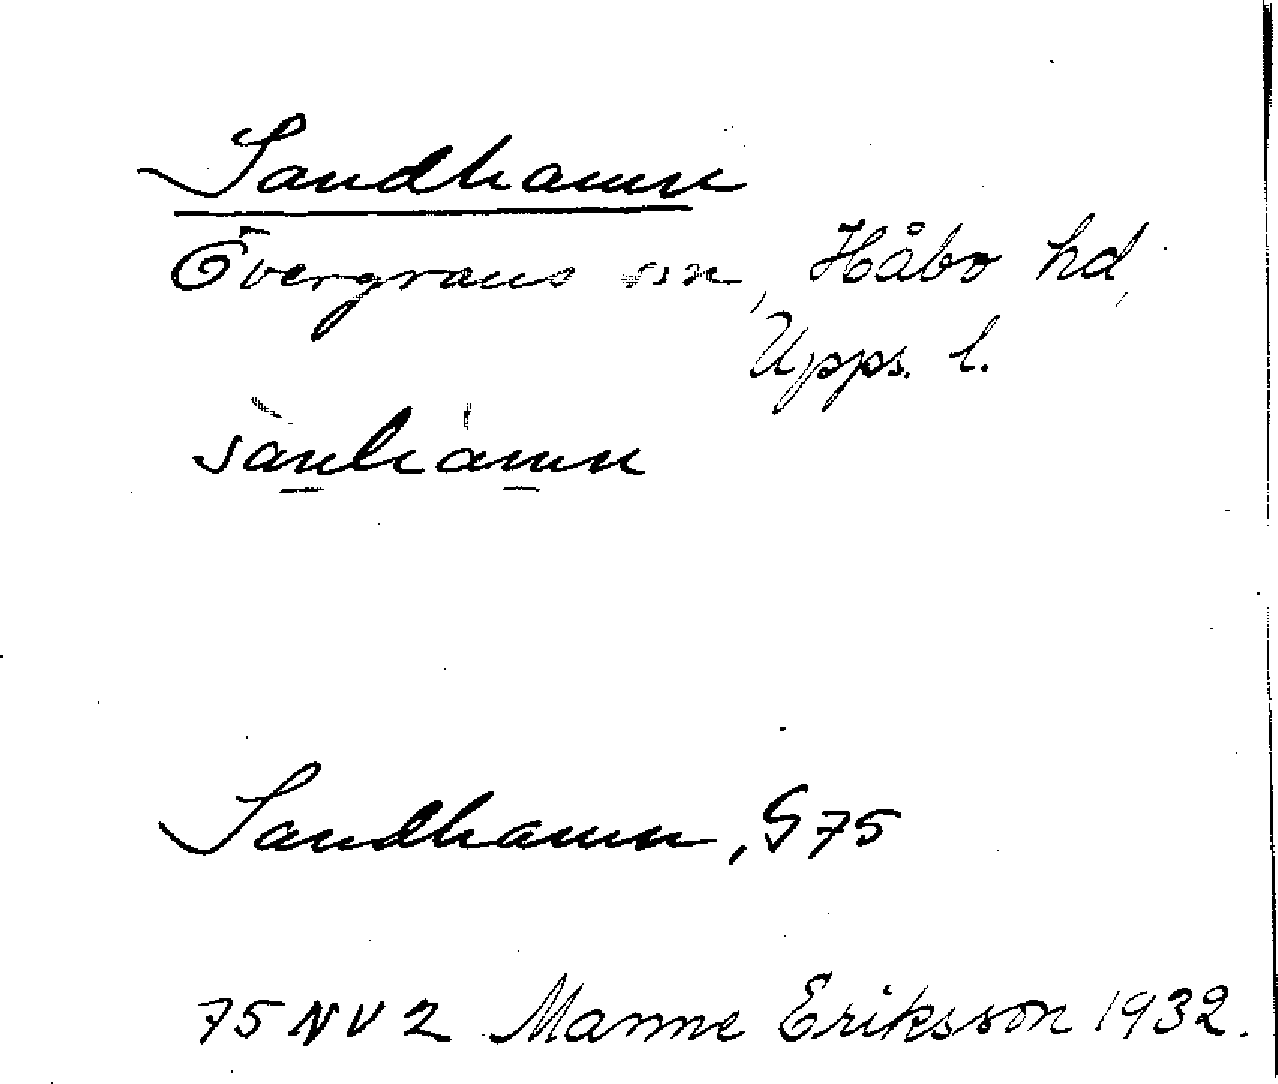 Sandhamn
Övergrans sn, Håbo hd,
Upps. l.
sànhámn
Sandhamn, G 75
75 NV 2 Manne Eriksson 1932.